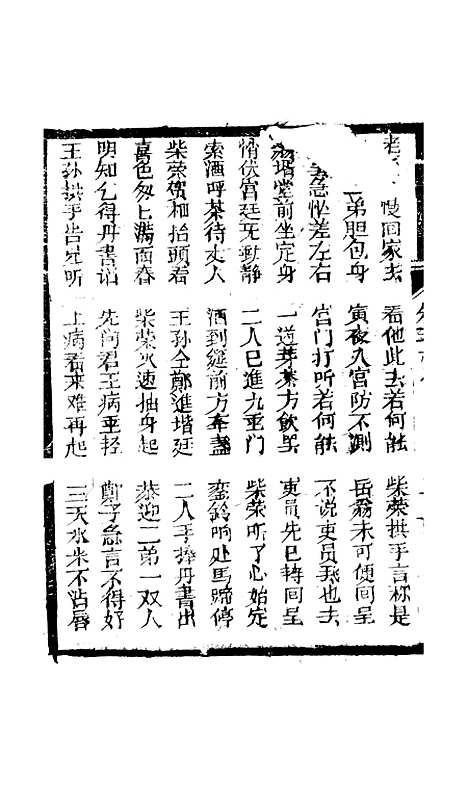 慢回家去 看他此去若何能 柴荣拱手言称是
弟胆包身 寅夜入宫防不测 岳翁未可便回呈
忙差左右 宫门打听若何能 不说吏员飛也去
堦堂前坐定身 一道芽茶方飲罢 吏员先已轉回呈
情伏宫廷无動静 二人已進九重门 柴荣听了心始定
索酒呼茶待丈人 酒到筵前方奉盞 銮鈴响处馬蹄停
柴荣贺柵抬頭看 王孙仝鄭進堦廷 二人手捧丹書出
喜色匆上满面春 柴荣火速抽身起 恭迎二弟一双人
明知乞得丹書詔 先问君王病重轻 鄭子急言不得好
王孙拱手告兄听 上病看来难再起 三天水米不沾唇